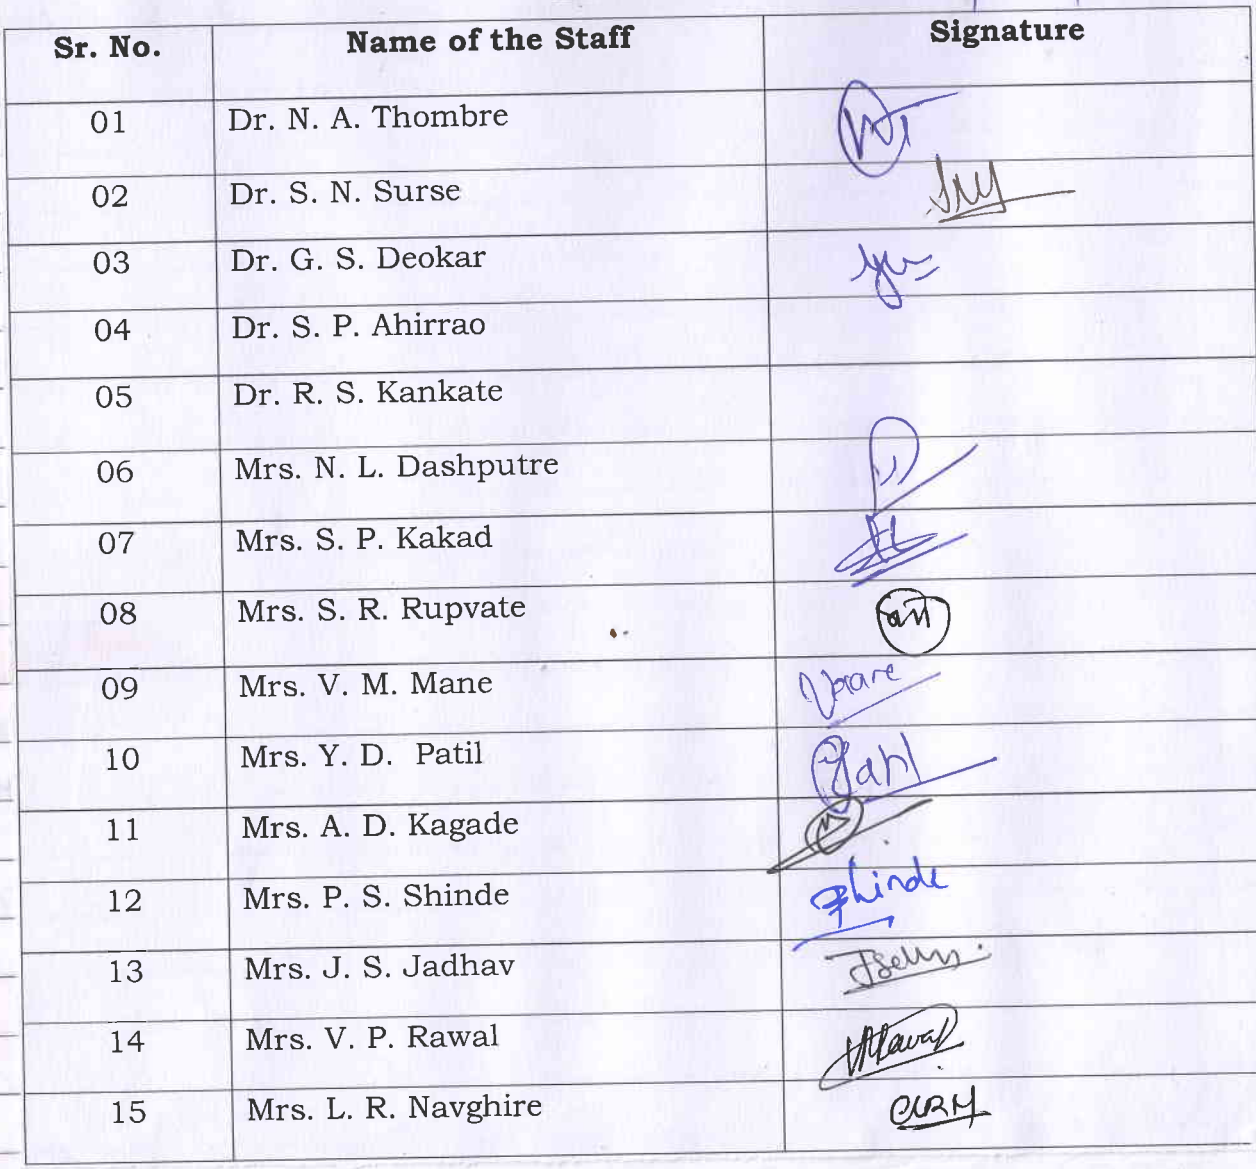 Sr. No. Name of the Staff Signature
01 Dr. N. A. Thombre
02 Dr. S. N. Surse
03 Dr. G. S. Deokar
04 Dr. S. P. Ahirrao
05 Dr. R. S. Kankate
06 Mrs. N. L. Dashputre
07 Mrs. S. P. Kakad
08 Mrs. S. R. Rupvate
09 Mrs. V. M. Mane
10 Mrs. Y. D. Patil
11 Mrs. A. D. Kagade
12 Mrs. P. S. Shinde Shinde
13 Mrs. J. S. Jadhav
14 Mrs. V. P. Rawal
15 Mrs. L. R. Navghire